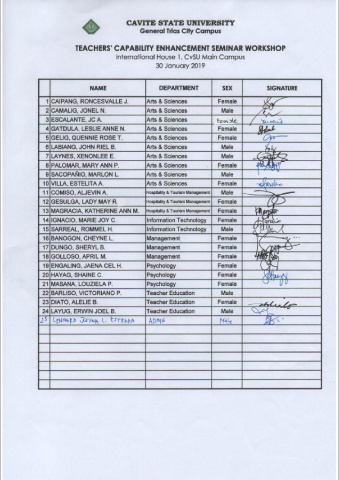 CAVITE STATE UNIVERSITY
General Trias City Campus
TEACHERS' CAPABILITY ENHANCEMENT SEMINAR WORKSHOP
International House 1, CvSU Main Campus
30 January 2019
NAME DEPARTMENT SEX SIGNATURE
1 CAIPANG, RONCESVALLE J. Arts & Sciences Female
2 CAMALIG, JONEL N. Arts & Sciences Male
3 ESCALANTE, JC A. Arts & Sciences Female
4 GATDULA, LESLIE ANNE N. Arts & Sciences Female
5 GELIG, QUENNIE ROSE T. Arts & Sciences Female
6 LABIANG, JOHN RIEL B. Arts & Sciences Male
7 LAYNES, XENONLEE E. Arts & Sciences Male
8 PALOMAR, MARY ANN P. Arts & Sciences Female
9 SACOPAÑIO, MARLON L. Arts & Sciences Male
10 VILLA, ESTELITA A. Arts & Sciences Female
11 COMISO, ALJEVIN A. Hospitality & Tourism Management Male
12 GESULGA, LADY MAY R. Hospitality & Tourism Management Female
13 MAGRACIA, KATHERINE ANN M. Hospitality & Tourism Management Female
14 IGNACIO, MARIE JOY C. Information Technology Female
15 SARREAL, ROMMEL H. Information Technology Male
16 BANOGON, CHEYNE L. Management Female
17 DUNGO, SHERYL B. Management Female
18 GOLLOSO, APRIL M. Management Female
19 ENGALING, JAENA CEL H. Psychology Female
20 HAYAG, SHAINE C. Psychology Female
21 MASANA, LOUZIELA P. Psychology Female
22 BARLISO, VICTORIANO P. Teacher Education Male
23 DIATO, ALELIE B. Teacher Education Female
24 LAYUG, ERWIN JOEL B. Teacher Education Male
25 Male